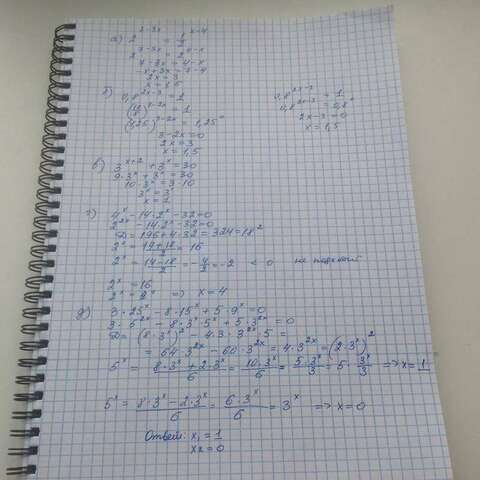 а) 2^(7-3x) = (1/2)^(x-4)
2^(7-3x) = 2^(4-x)
7-3x = 4-x
-x+3x = 7-4
2x = 3
x = 1,5
б) 0,8^(2x-3) = 1
= 1
(1,25)^(3-2x) = 1,25°
3-2x=0
2x=3
x=1,5
0,8^(2x-3) = 1
0,8^(2x-3) = 0,8°
2x-3=0
x=1,5
в) 3^(x+2) + 3^x = 30
9·3^x + 3^x = 30
10·3^x = 3·10
3^x = 3'
г) 4^x - 14·2^x - 32 = 0
2^(2x) - 14·2^x - 32 = 0
D = 196 + 4·32 = 324 = 18²
2^x = (14+18)/2 = 16
2^x = (14-18)/2 = -4/2 = -2 < 0 не подходит
2^x = 16
=> x = 4
д) 3·25^x - 8·15^x + 5·9^x = 0
3·5^(2x) - 8·3^x·5^x + 5·3^(2x) = 0
D = (8·3^x)² - 4·3·3^(2x)·5 =
= 64·3^(2x) - 60·3^(2x) = 4·3^(2x) = (2·3^x)²
5^x = (8·3^x + 2·3^x)/6 = (10·3^x)/6 = (5·3^x)/3 = 5·3^x/3 => x = 1
5^x = (8·3^x - 2·3^x)/6 = (6·3^x)/6 = 3^x => x = 0
Ответ: x₁ = 1
x₂ = 0